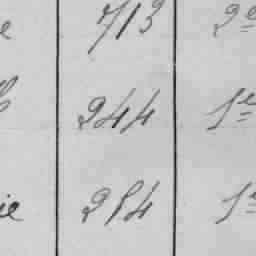 e 713 2e
244 1e
ie 254 1e